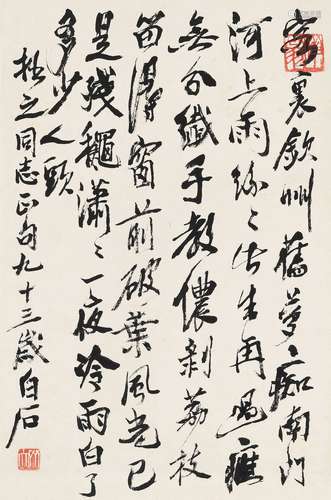 客裏欽州舊夢痴南門
河上雨絲〻此生再過應
無分纖手教儂剝荔枝
畱得窗前破葉風光已
是殘龝瀟〻一夜冷雨白了
多少人頭
拙之同志正句九十三歲白石